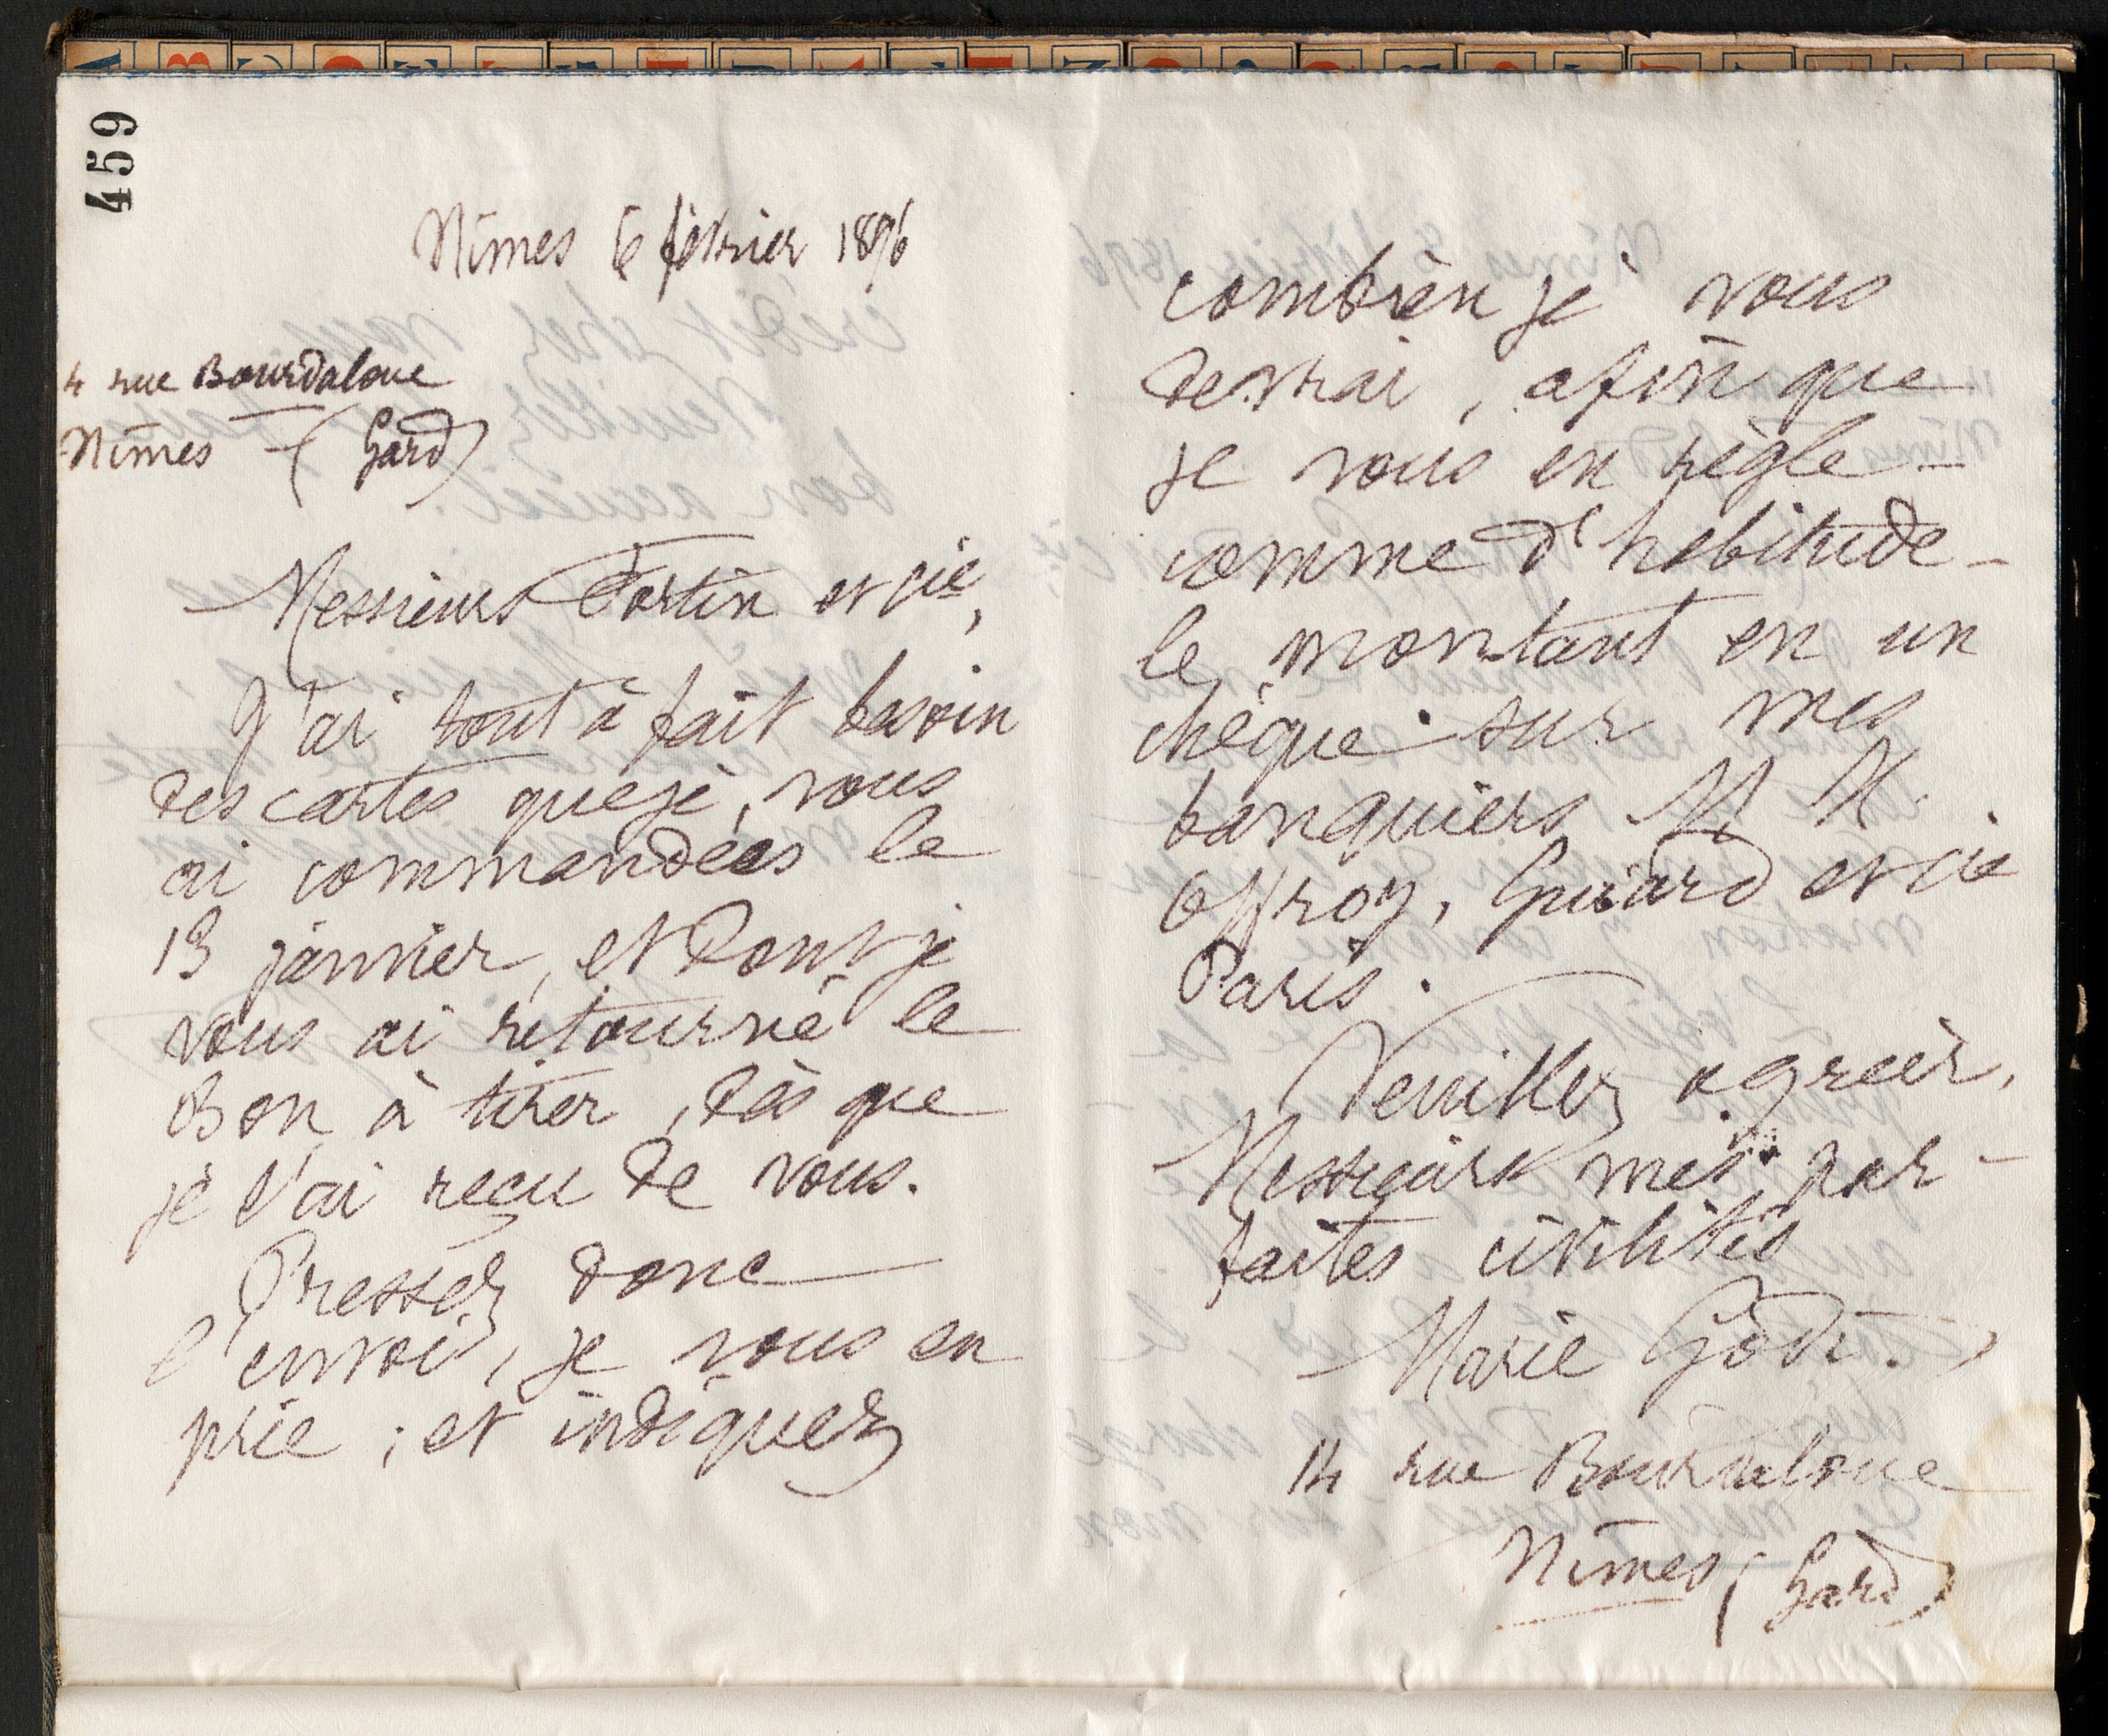 459
Nîmes 6 février 1896
4 rue Bourdaloue
Nîmes - (Gard)
Messieurs Fortin et Cie,
J'ai tout à fait besoin
des cartes que je vous
ai commandées le
13 janvier, et dont je
vous ai retourné le
Bon à tirer, dès que
je l'ai reçu de vous.
Pressez donc
l'envoi, je vous en
prie ; et indiquez
combien je vous
devrai, afin que
je vous en règle -
comme d'habitude -
le montant en un
chèque sur mes
banquiers M M.
Offroy, Guiard et Cie
Paris.
Veuillez agréer,
Messieurs mes par-
faites civilités
Marie Godi.
14 rue Bourdaloue
Nîmes (Gard)